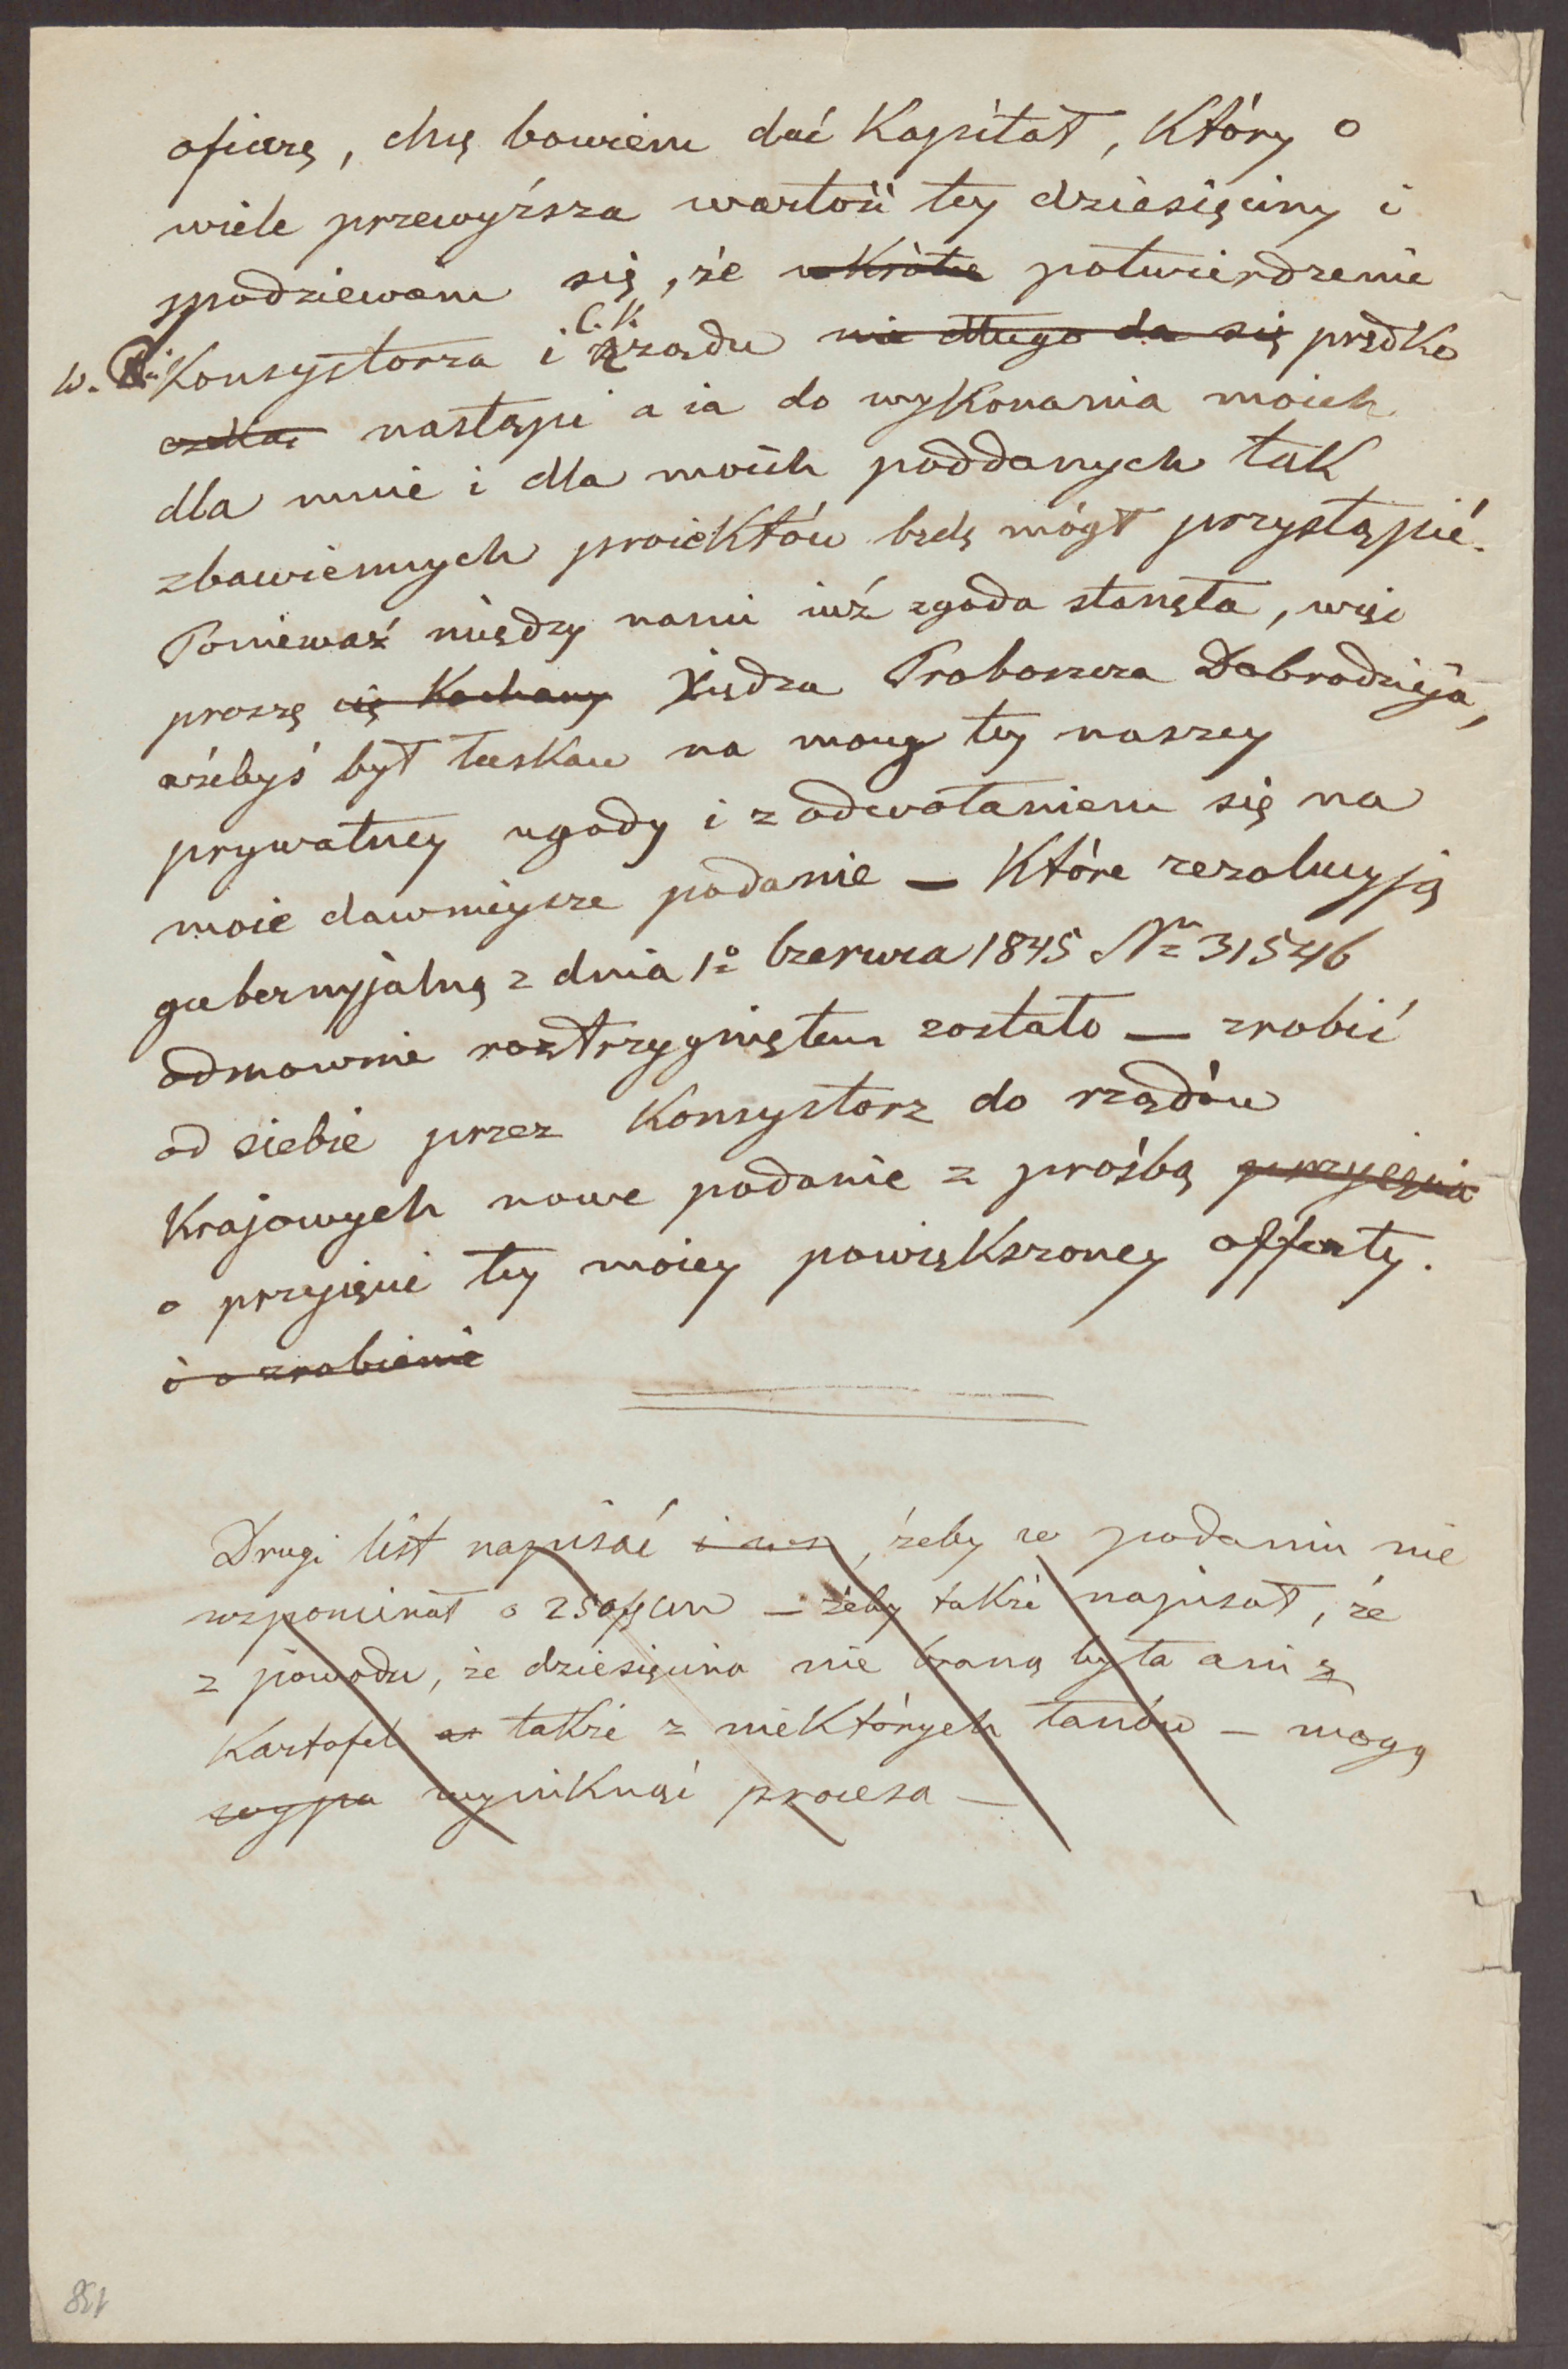 ofiarę, chcę bowiem dać Kapitał, Który o
wiele przewyższa wartość tey dziesięciny i
spodziewam się, że wKrótce potwierdzenie
C. K.
w. Konsystorza i rządu nie długo da się prędKo
czeKać nastąpi a ia do wyKonania moich
dla mnie i dla moich poddanych taK
zbawiennych proieKtów będę mógł przystąpić.
Ponieważ między nami iuż zgoda stanęła, więc
proszę cię Kochany Xiędza Proboszcza Dobrodzieja,
ażebyś był łasKaw na mocy tey naszey
prywatney ugody i z odwołaniem się na
moie dawnieysze podanie — Które rezolucyją
gubernyjalną z dnia 1o Czerwca 1845 Nr 31546
odmownie roztrzygniętem zostało — zrobić
od siebie przez Konsystorz do rządów
Krajowych nowe podanie z prośbą przyięcia
o przyięcie tey moiey powięKszoney offerty.
i o zrobienie
Drugi list napisać i , żeby w podaniu nie
wspominał o 250 — żeby taKże napisał, że
z powodu, że dziesięcina nie braną była ani z
Kartofel a taKże z nieKtórych łanów — mogą
wyniKnąć procesa —
158